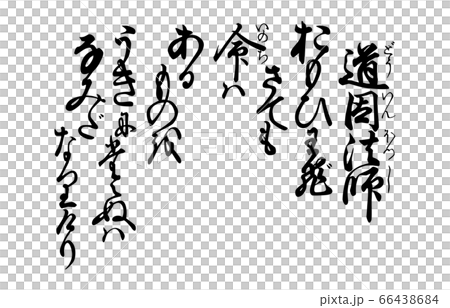 道因法師
どういんほうし
おもひわび
さても
命ハ
いのち
ある
ものを
うきに堪へぬハ
なみだ
なりけり
pixta.jp - 66438684